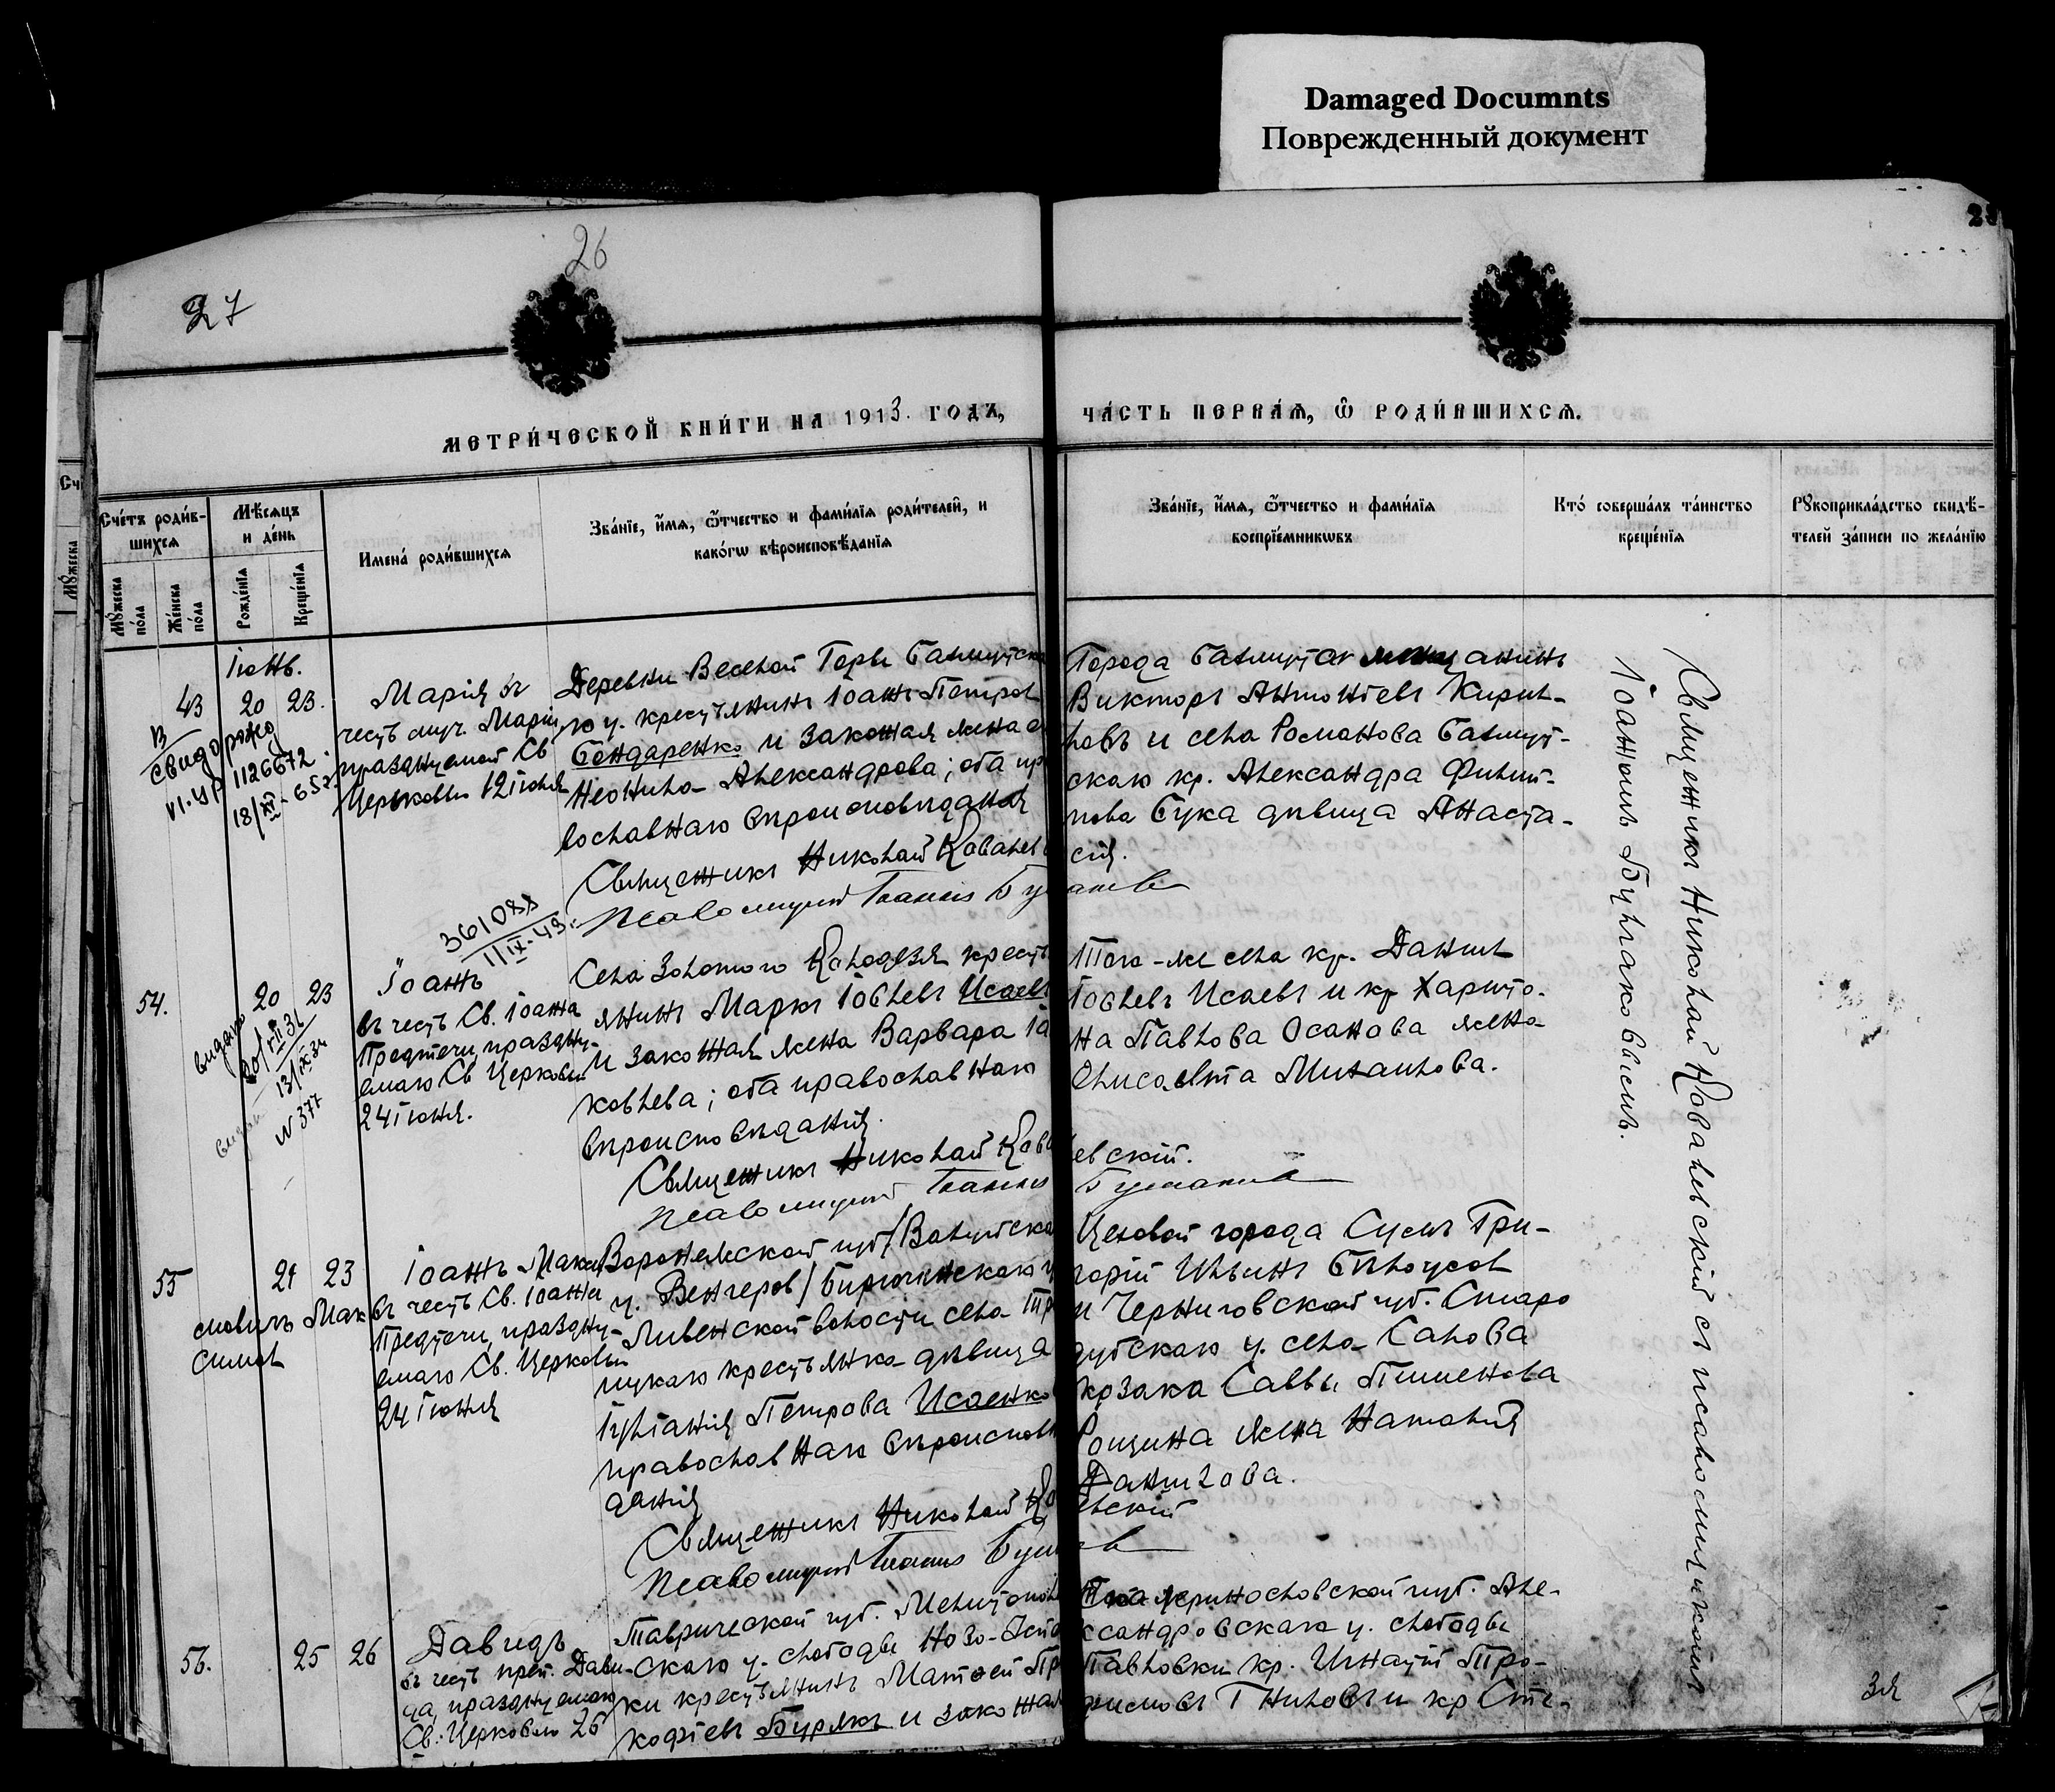 Damaged Documnts
Поврежденный документ
26
27
метри́ческой кни́ги на 1913. годъ,
ча́сть перва́ѧ, ѡ҃ роди́вшихсѧ.
Сче́тъ роди́в-
шихсѧ
Мꙋ́жеска по́ла
Же́нска по́ла
Мѣ́сѧцъ
и де́нь
Рожде́нїѧ
Креще́нїѧ
Имена́ роди́вшихсѧ
Зва́нїе, и҆́мѧ, ѻ҆́тчество и фами́лїѧ роди́телей, и
како́гѡ вѣроисповѣ́данїѧ
Зва́нїе, и҆́мѧ, ѻ҆́тчество и фами́лїѧ
воспрїе́мникѡвъ
Кто́ соверша́лъ та́инство
креще́нїѧ
Рꙋкоприкла́дство свидѣ́-
телей за́писи по жела́нїю
Іюнь.
43 20 23.
VI. УР 1126672
18/XI - 652
Марія въ
честь муч. Маріи,
празднуемой Св
Церковью 12 іюня
Деревни Веселой Горы Бахмутска
го у. крестьянинъ Іоаннъ Петров
Бондаренко и законная жена е
Неонила Александрова; оба пр
вославнаго вѣроисповѣданія
Священникъ Николай Ковалев
Псаломщикъ Іоаннъ
Города Бахмута мѣщанинъ
Викторъ Антоніевъ Кирил-
ловъ и села Романова Бахмут-
скаго кр. Александра Филип-
пова Бука дѣвица Анаста-
сія.
361088
1/IX-49
54. 20 23
выдано
20/VII 31
13/IX 34
N 377
Іоаннъ
въ честь Св. Іоанна
Предтечи, праздну-
емаго Св. Церковью
24 іюня.
Села Золотого Колодезя кресть
янинъ Маркъ Іовлевъ Исаевъ
и законная жена Варвара Іа
ковлева; оба православнаго
вѣроисповѣданія.
Священникъ Николай Кова
левскій.
Псаломщикъ Іоаннъ
Того-же села кр. Даніилъ
Іовлевъ Исаевъ и кр. Харито-
на Павлова Осанова жена
Елисавета Михаилова.
55 21 23
Іоаннъ Мака
въ честь Св. Іоанна
Предтечи, праздну-
емаго Св. Церковью
24 іюня
Воронежской губ. /Валуйска
у. Венгеров/ Бирюченскаго у
Ливенской волости села
крестьянка дѣвица
Іуліанія Петрова Исаенко
православнаго вѣроисповѣ
данія
Священникъ Николай Ко
левскій
Псаломщикъ Іоаннъ
Цеховой города Сумъ Гри-
горій Ильинъ Бѣлоусов
и Черниговской губ. Старо
дубскаго у. села Салова
козака Саввы Пименова
Рощина жена Наталія
Данилова.
56. 25 26
Давидъ
въ честь преп. Дави-
да, празднуемаго
Св. Церковью 26
Таврической губ. Мелитополь
скаго у. слободы Ново-
ки крестьянинъ Матфей Пр
кофіевъ Бурякъ и законная
Екатеринославской губ. Але-
ксандровскаго у. слободы
Павловки кр. Игнатій Тро-
фимовъ Гниловъ и кр.
Священникъ Николай Ковалевскій съ псаломщикомъ
Іоанномъ